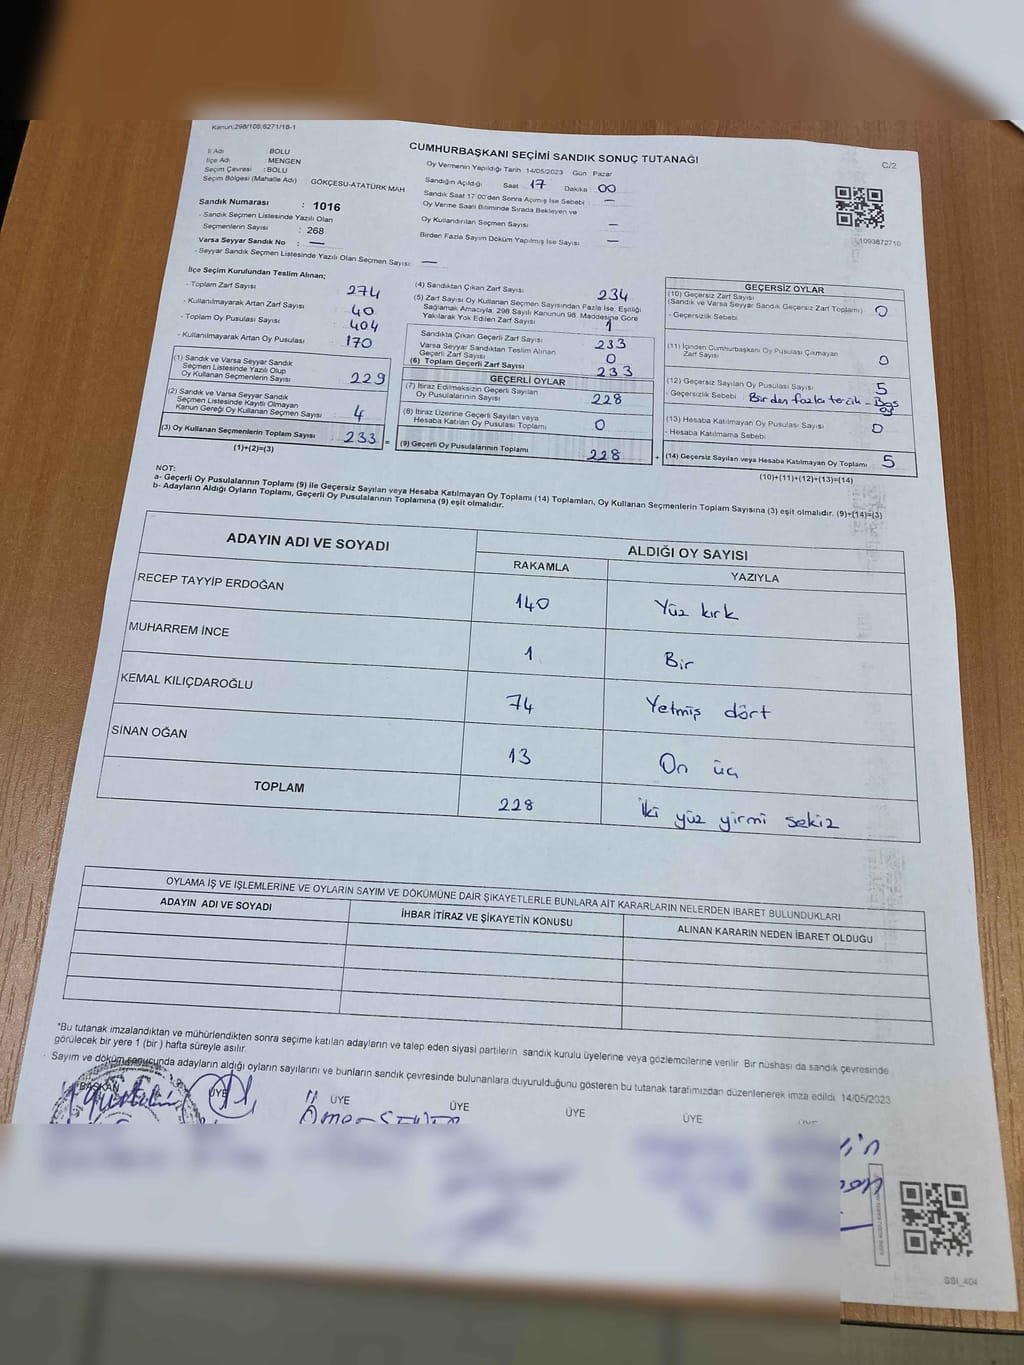 Kanun:298/105;6271/18-1
CUMHURBAŞKANI SEÇİMİ SANDIK SONUÇ TUTANAĞI
C/2
İl Adı : BOLU
İlçe Adı : MENGEN
Seçim Çevresi : BOLU
Seçim Bölgesi (Mahalle Adı) GÖKÇESU-ATATÜRK MAH
Oy Vermenin Yapıldığı Tarih 14/05/2023 Gün Pazar
Sandığın Açıldığı Saat 17 Dakika 00
Sandık Saat 17:00'den Sonra Açılmış İse Sebebi —
Oy Verme Saati Bitiminde Sırada Bekleyen ve
Oy Kullandırılan Seçmen Sayısı —
Birden Fazla Sayım Döküm Yapılmış İse Sayısı —
1093872710
Sandık Numarası : 1016
- Sandık Seçmen Listesinde Yazılı Olan
Seçmenlerin Sayısı : 268
Varsa Seyyar Sandık No : —
- Seyyar Sandık Seçmen Listesinde Yazılı Olan Seçmen Sayısı: —
İlçe Seçim Kurulundan Teslim Alınan;
- Toplam Zarf Sayısı 274
- Kullanılmayarak Artan Zarf Sayısı 40
- Toplam Oy Pusulası Sayısı 404
- Kullanılmayarak Artan Oy Pusulası 170
(1) Sandık ve Varsa Seyyar Sandık
Seçmen Listesinde Yazılı Olup
Oy Kullanan Seçmenlerin Sayısı 229
(2) Sandık ve Varsa Seyyar Sandık
Seçmen Listesinde Kayıtlı Olmayan
Kanun Gereği Oy Kullanan Seçmen Sayısı 4
(3) Oy Kullanan Seçmenlerin Toplam Sayısı 233 =
(1)+(2)=(3)
(4) Sandıktan Çıkan Zarf Sayısı 234
(5) Zarf Sayısı Oy Kullanan Seçmen Sayısından Fazla İse, Eşitliği
Sağlamak Amacıyla, 298 Sayılı Kanunun 98. Maddesine Göre
Yakılarak Yok Edilen Zarf Sayısı 1
Sandıkta Çıkan Geçerli Zarf Sayısı 233
Varsa Seyyar Sandıktan Teslim Alınan
Geçerli Zarf Sayısı 0
(6) Toplam Geçerli Zarf Sayısı 233
GEÇERLİ OYLAR
(7) İtiraz Edilmeksizin Geçerli Sayılan
Oy Pusulalarının Sayısı 228
(8) İtiraz Üzerine Geçerli Sayılan veya
Hesaba Katılan Oy Pusulası Toplamı 0
(9) Geçerli Oy Pusulalarının Toplamı 228 +
GEÇERSİZ OYLAR
(10) Geçersiz Zarf Sayısı
(Sandık ve Varsa Seyyar Sandık Geçersiz Zarf Toplamı) 0
- Geçersizlik Sebebi
(11) İçinden Cumhurbaşkanı Oy Pusulası Çıkmayan
Zarf Sayısı 0
(12) Geçersiz Sayılan Oy Pusulası Sayısı 5
- Geçersizlik Sebebi Birden fazla tercih - Boş oy
(13) Hesaba Katılmayan Oy Pusulası Sayısı 0
- Hesaba Katılmama Sebebi
(14) Geçersiz Sayılan veya Hesaba Katılmayan Oy Toplamı 5
(10)+(11)+(12)+(13)=(14)
NOT:
a- Geçerli Oy Pusulalarının Toplamı (9) ile Geçersiz Sayılan veya Hesaba Katılmayan Oy Toplamı (14) Toplamları, Oy Kullanan Seçmenlerin Toplam Sayısına (3) eşit olmalıdır. (9)+(14)=(3)
b- Adayların Aldığı Oyların Toplamı, Geçerli Oy Pusulalarının Toplamına (9) eşit olmalıdır.
ADAYIN ADI VE SOYADI
ALDIĞI OY SAYISI
RAKAMLA YAZIYLA
RECEP TAYYİP ERDOĞAN 140 Yüz kırk
MUHARREM İNCE 1 Bir
KEMAL KILIÇDAROĞLU 74 Yetmiş dört
SİNAN OĞAN 13 On üç
TOPLAM 228 İki yüz yirmi sekiz
OYLAMA İŞ VE İŞLEMLERİNE VE OYLARIN SAYIM VE DÖKÜMÜNE DAİR ŞİKAYETLERLE BUNLARA AİT KARARLARIN NELERDEN İBARET BULUNDUKLARI
ADAYIN ADI VE SOYADI İHBAR İTİRAZ VE ŞİKAYETİN KONUSU ALINAN KARARIN NEDEN İBARET OLDUĞU
*Bu tutanak imzalandıktan ve mühürlendikten sonra seçime katılan adayların ve talep eden siyasi partilerin sandık kurulu üyelerine veya gözlemcilerine verilir. Bir nüshası da sandık çevresinde
görülecek bir yere 1 (bir) hafta süreyle asılır.
Sayım ve döküm sonucunda adayların aldığı oyların sayılarını ve bunların sandık çevresinde bulunanlara duyurulduğunu gösteren bu tutanak tarafımızdan düzenlenerek imza edildi. 14/05/2023
BAŞKAN ÜYE ÜYE ÜYE ÜYE ÜYE
SSI_404